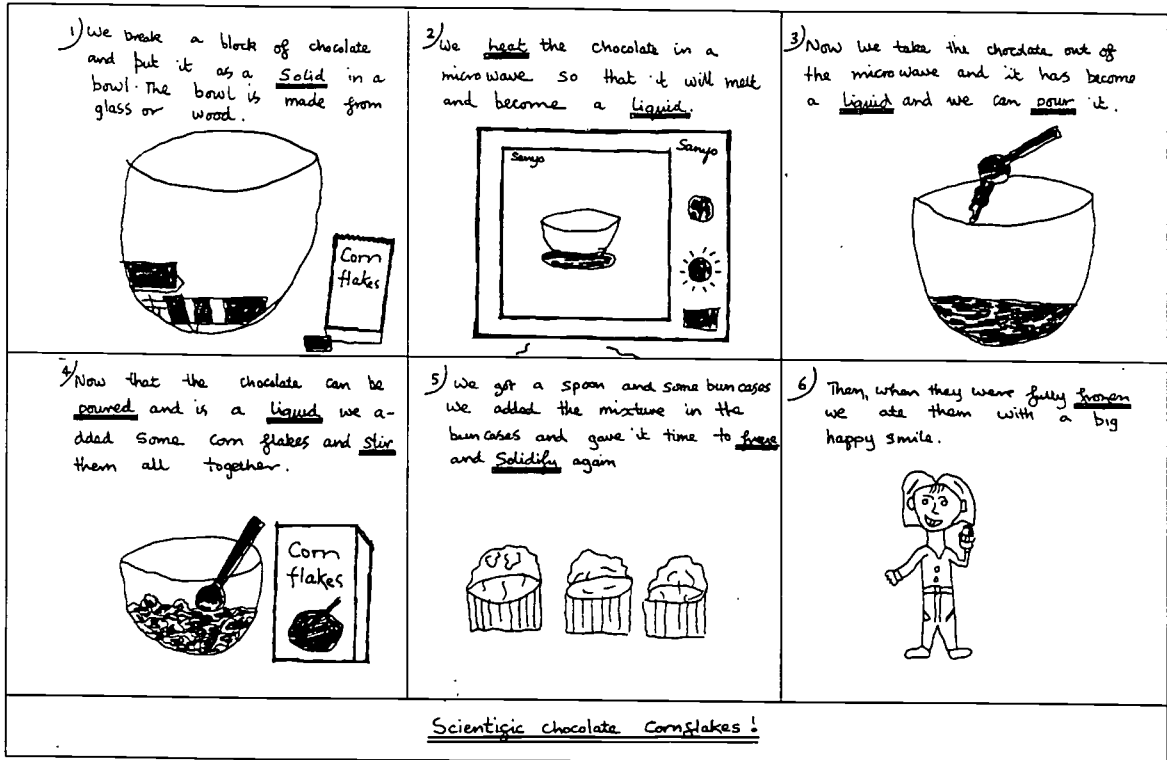 1) We break a block of chocolate
and put it as a solid in a
bowl. The bowl is made from
glass or wood.
Corn
flakes
2) We heat the chocolate in a
microwave so that it will melt
and become a liquid.
Sanyo
Sanyo
3) Now we take the choclate out of
the microwave and it has become
a liquid and we can pour it.
4) Now that the chocolate can be
poured and is a liquid we a-
dded some corn flakes and stir
them all together.
Corn
flakes
5) We got a spoon and some bun cases
we added the mixture in the
bun cases and gave it time to
and Solidify again
6) Then, when they were fully frozen
we ate them with a big
happy smile.
Scientigic chocolate Cornflakes!